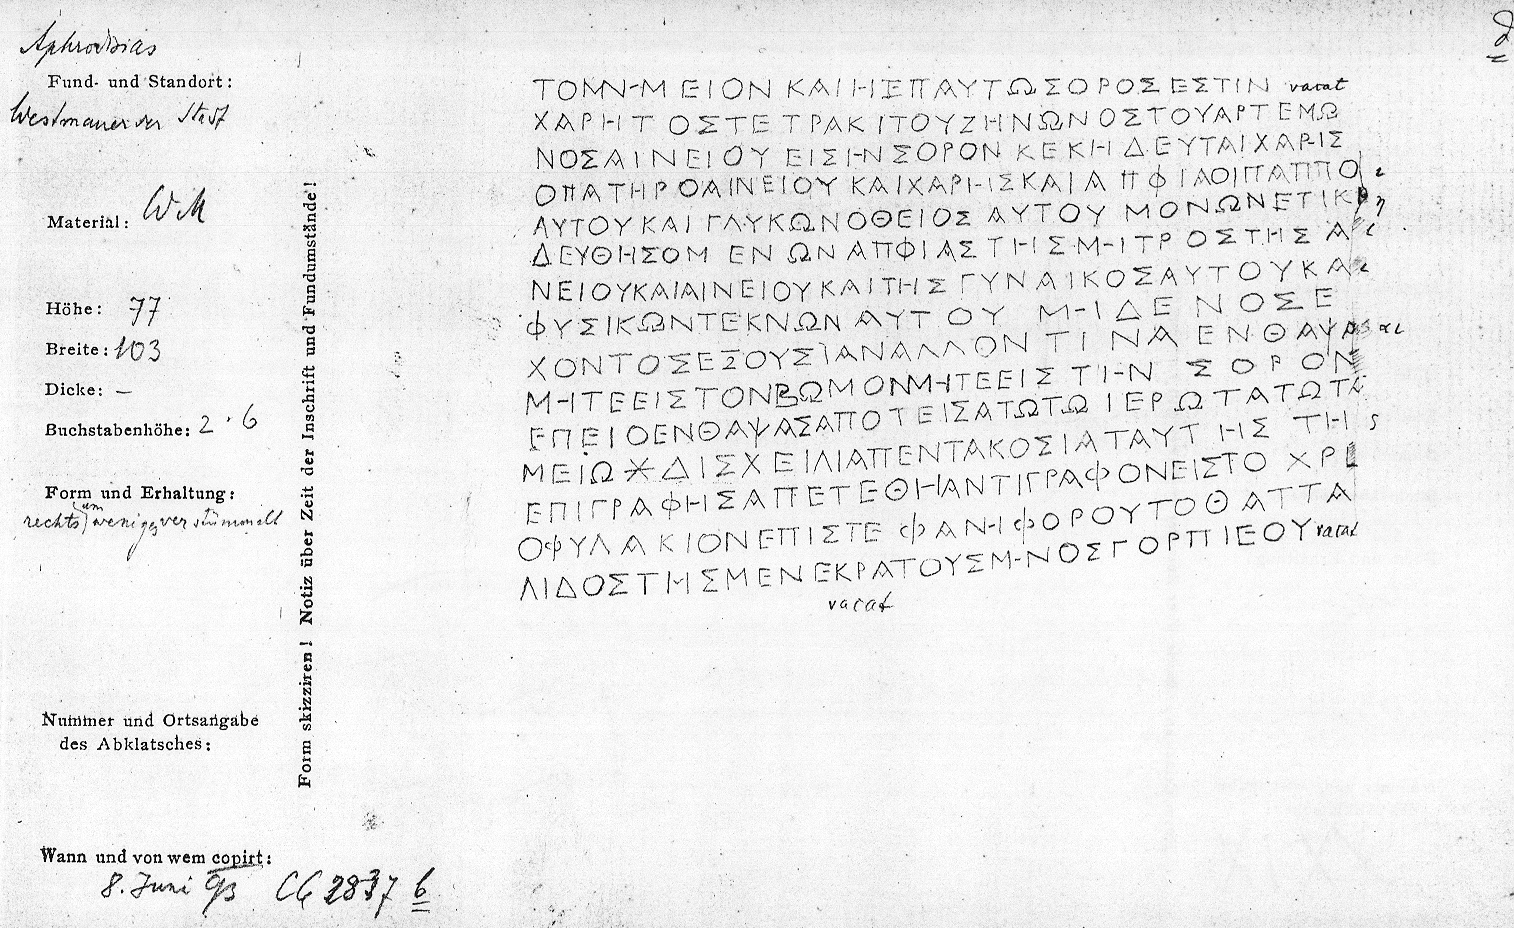 Aphrodisias
Fund- und Standort:
Westmauer der Stadt
Material: WM
Höhe: 77
Breite: 103
Dicke: –
Buchstabenhöhe: 2·6
Form und Erhaltung:
rechts um weniges verstümmelt
Nummer und Ortsangabe
des Abklatsches:
Wann und von wem copirt:
8. Juni 93 CIG 2837 b
Form skizziren! Notiz über Zeit der Inschrift und Fundumstände!
ΤΟΜΝΗΜΕΙΟΝ ΚΑΙ Η ΕΠΑΥΤΩ ΣΟΡΟΣ ΕΣΤΙΝ vacat
ΧΑΡΗΤΟΣ ΤΕΤΡΑΚΙ ΤΟΥ ΖΗΝΩΝΟΣ ΤΟΥ ΑΡΤΕΜΩ
ΝΟΣ ΑΙΝΕΙΟΥ ΕΙΣ ΗΝ ΣΟΡΟΝ ΚΕΚΗΔΕΥΤΑΙ ΧΑΡΗΣ
Ο ΠΑΤΗΡ Ο ΑΙΝΕΙΟΥ ΚΑΙ ΧΑΡΗΣ ΚΑΙ ΑΠΦΙΑ ΟΙ ΠΑΠΠΟι
ΑΥΤΟΥ ΚΑΙ ΓΛΥΚΩΝ Ο ΘΕΙΟΣ ΑΥΤΟΥ ΜΟΝΩΝ ΕΤΙ Κη
ΔΕΥΘΗΣΟΜΕΝΩΝ ΑΠΦΙΑΣ ΤΗΣ ΜΗΤΡΟΣ ΤΗΣ Αι
ΝΕΙΟΥ ΚΑΙ ΑΙΝΕΙΟΥ ΚΑΙ ΤΗΣ ΓΥΝΑΙΚΟΣ ΑΥΤΟΥ ΚΑι
ΦΥΣΙΚΩΝ ΤΕΚΝΩΝ ΑΥΤΟΥ ΜΗΔΕΝΟΣ Ε
ΧΟΝΤΟΣ ΕΞΟΥΣΙΑΝ ΑΛΛΟΝ ΤΙΝΑ ΕΝΘΑΨΑΣαι
ΜΗΤΕ ΕΙΣ ΤΟΝ ΒΩΜΟΝ ΜΗΤΕ ΕΙΣ ΤΗΝ ΣΟΡΟΝ
ΕΠΕΙ Ο ΕΝΘΑΨΑΣ ΑΠΟΤΕΙΣΑΤΩ ΤΩ ΙΕΡΩΤΑΤΩ ΤΑ
ΜΕΙΩ ✳ ΔΙΣΧΕΙΛΙΑ ΠΕΝΤΑΚΟΣΙΑ ΤΑΥΤΗΣ ΤΗς
ΕΠΙΓΡΑΦΗΣ ΑΠΕΤΕΘΗ ΑΝΤΙΓΡΑΦΟΝ ΕΙΣ ΤΟ ΧΡΕ
ΟΦΥΛΑΚΙΟΝ ΕΠΙ ΣΤΕΦΑΝΗΦΟΡΟΥ ΤΟ Θ ΑΤΤΑ
ΛΙΔΟΣ ΤΗΣ ΜΕΝΕΚΡΑΤΟΥΣ ΜΗΝΟΣ ΓΟΡΠΙΕΟΥ vacat
vacat